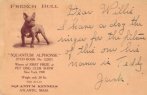 FRENCH BULL
"SQUANTUM ALPHONSE"
Winner of FIRST PRIZE at
PET DOG CLUB SHOW
New York, 1906
SQUANTUM KENNELS
ATLANTIC, MASS.
Dear Willie
I have a dog the
image for the picture
of this one his
name is Teddy